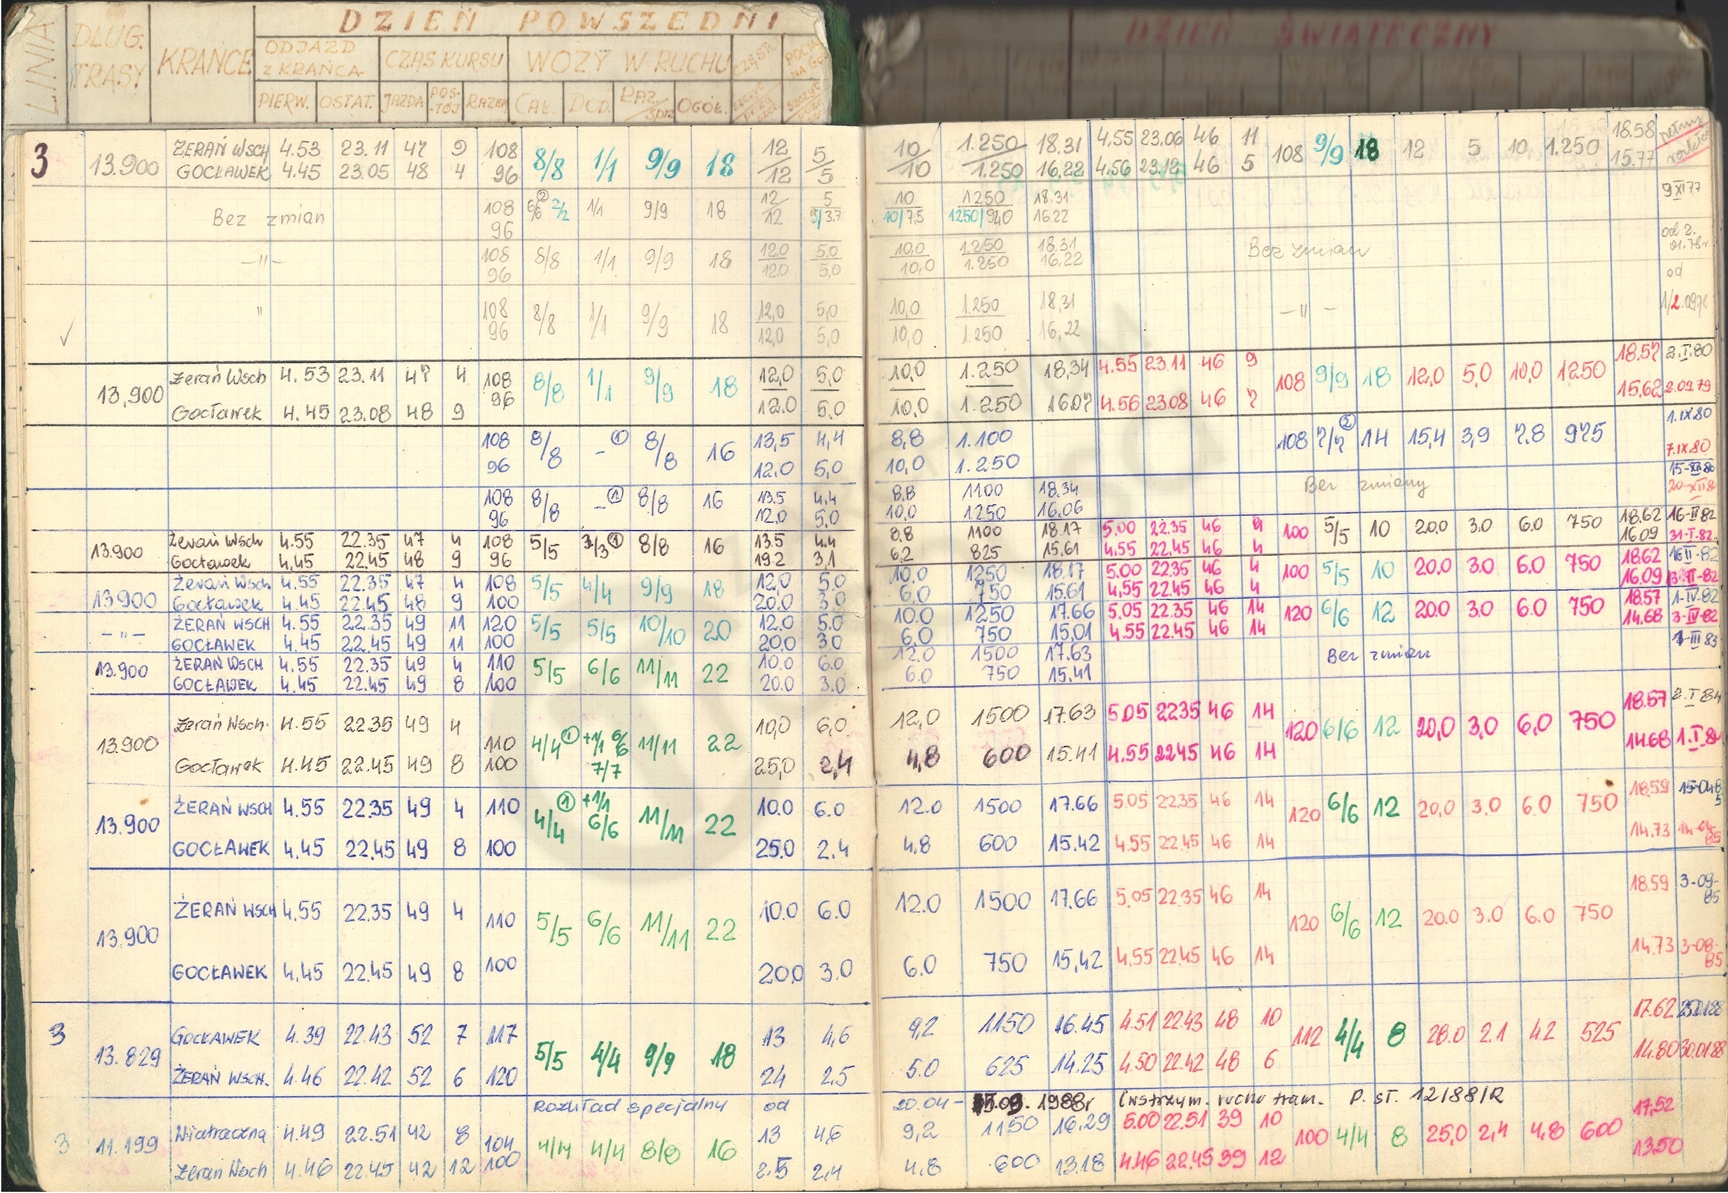 DZIEŃ POWSZEDNI
DZIEŃ ŚWIĄTECZNY
LINIA DŁUG. TRASY KRAŃCE ODJAZD Z KRAŃCA CZAS KURSU WOZY W RUCHU
PIERW. OSTAT. JAZDA POS-TÓJ RAZEM CAŁ. DOD. RAZ OGÓŁ.
3 13.900 ŻERAŃ WSCH 4.53 23.11 47 9 108 8/8 1/1 9/9 18 12 5 10 1.250 18,31 4.55 23.06 46 11 108 9/9 18 12 5 10 1.250 18.58
GOCŁAWEK 4.45 23.05 48 4 96 12 5 10 1.250 16,22 4,56 23.12 46 5 15.77
Bez zmian 108 6/6 ② 2/2 1/1 9/9 18 12 5 10 1250 18.31 9 XI 77
96 12 5/3.7 10/7,5 1250/940 16.22
—"— 108 8/8 1/1 9/9 18 12.0 5.0 10,0 1.250 18,31 Bez zmian od 2.
96 12.0 5,0 10,0 1.250 16,22 01.78r
" 108 8/8 1/1 9/9 18 12,0 5,0 10,0 1.250 18,31 —"— od
96 12,0 5,0 10,0 1.250 16,22
13,900 Żerań Wsch 4.53 23.11 47 4 108 8/8 1/1 9/9 18 12,0 5,0 10,0 1.250 18,34 4.55 23.11 46 9 108 9/9 18 12,0 5,0 10,0 1250 18.57 2.I.80
Gocławek 4.45 23.08 48 9 96 12.0 5,0 10,0 1.250 16.07 4.56 23.08 46 7 15,62 2.09.79
108 8/8 – ① 8/8 16 13,5 4,4 8,8 1.100 108 7/7 ② 14 15,4 3,9 7.8 975 1.IX.80
96 12.0 5,0 10,0 1.250 7.IX.80
108 8/8 – ① 8/8 16 13.5 4.4 8,8 1100 18,34 Bez zmiany
96 12,0 5,0 10,0 1250 16.06
13.900 Żerań Wsch 4.55 22.35 47 4 108 5/5 3/3 ① 8/8 16 13.5 4.4 8,8 1100 18.17 5.00 22.35 46 9 100 5/5 10 20.0 3.0 6.0 750 18.62 16-II-82
Gocławek 4,45 22.45 48 9 96 19.2 3,1 6,2 825 15.61 4.55 22.45 46 4 16.09 31-I-82
13.900 Żerań Wsch 4.55 22.35 47 4 108 5/5 4/4 9/9 18 12,0 5.0 10,0 1250 18.17 5.00 22.35 46 4 100 5/5 10 20.0 3.0 6.0 750 18.62 16 II-82
Gocławek 4.45 22.45 48 9 100 20.0 3.0 6.0 750 15.61 4,55 22.45 46 4 16.09
—"— ŻERAŃ WSCH 4.55 22.35 49 11 120 5/5 5/5 10/10 20 12.0 5.0 10.0 1250 17.66 5.05 22.35 46 14 120 6/6 12 20.0 3.0 6.0 750 18.57 1-IV-82
GOCŁAWEK 4.45 22.45 49 11 100 20.0 3.0 6.0 750 15,01 4.55 22.45 46 14 14.68 3-IV-82
13.900 ŻERAŃ WSCH 4.55 22.35 49 4 110 5/5 6/6 11/11 22 10.0 6.0 12.0 1500 17.63 Bez zmian III 83
GOCŁAWEK 4.45 22.45 49 8 100 20.0 3.0 6.0 750 15,41
13.900 Żerań Wsch. 4.55 22.35 49 4 110 4/4 ① +1/1 6/6 11/11 22 10,0 6,0 12,0 1500 17.63 5.05 22.35 46 14 120 6/6 12 20,0 3,0 6,0 750 18.57 2.I.84
Gocławek 4.45 22.45 49 8 100 7/7 25,0 2,4 4,8 600 15.41 4.55 22.45 46 14 14.68 1.I.84
13.900 ŻERAŃ WSCH 4.55 22.35 49 4 110 4/4 ① +1/1 6/6 11/11 22 10.0 6.0 12.0 1500 17.66 5.05 22.35 46 14 120 6/6 12 20,0 3.0 6.0 750 18.59 15-04-85
GOCŁAWEK 4.45 22.45 49 8 100 25.0 2.4 4,8 600 15.42 4.55 22.45 46 14 14.73 14-04-85
13.900 ŻERAŃ WSCH 4.55 22.35 49 4 110 5/5 6/6 11/11 22 10.0 6.0 12.0 1500 17.66 5,05 22.35 46 14 120 6/6 12 20.0 3.0 6.0 750 18.59 3-09-85
GOCŁAWEK 4.45 22.45 49 8 100 20.0 3.0 6.0 750 15,42 4.55 22.45 46 14 14.73 3-08-85
3 13.829 GOCŁAWEK 4.39 22.43 52 7 117 5/5 4/4 9/9 18 13 4,6 9,2 1150 16.45 4.51 22.43 48 10 112 4/4 8 28.0 2.1 4.2 525 17.62 25.01.88
ŻERAŃ WSCH. 4.46 22.42 52 6 120 24 2.5 5.0 625 14.25 4.50 22.42 48 6 14.80 30.01.88
Rozkład specjalny od 20.04 – 15.09.1988r (wstrzym. ruchu tram. P. ST. 12/88/R
3 11.199 Wiatraczna 4.49 22.51 42 8 104 4/4 4/4 8/8 16 13 4,6 9,2 1150 16,29 5.00 22.51 39 10 100 4/4 8 25,0 2,4 4,8 600 17,52
Żerań Wsch 4.46 22.45 42 12 100 25 2,4 4,8 600 13.18 4.46 22.45 39 12 13.50